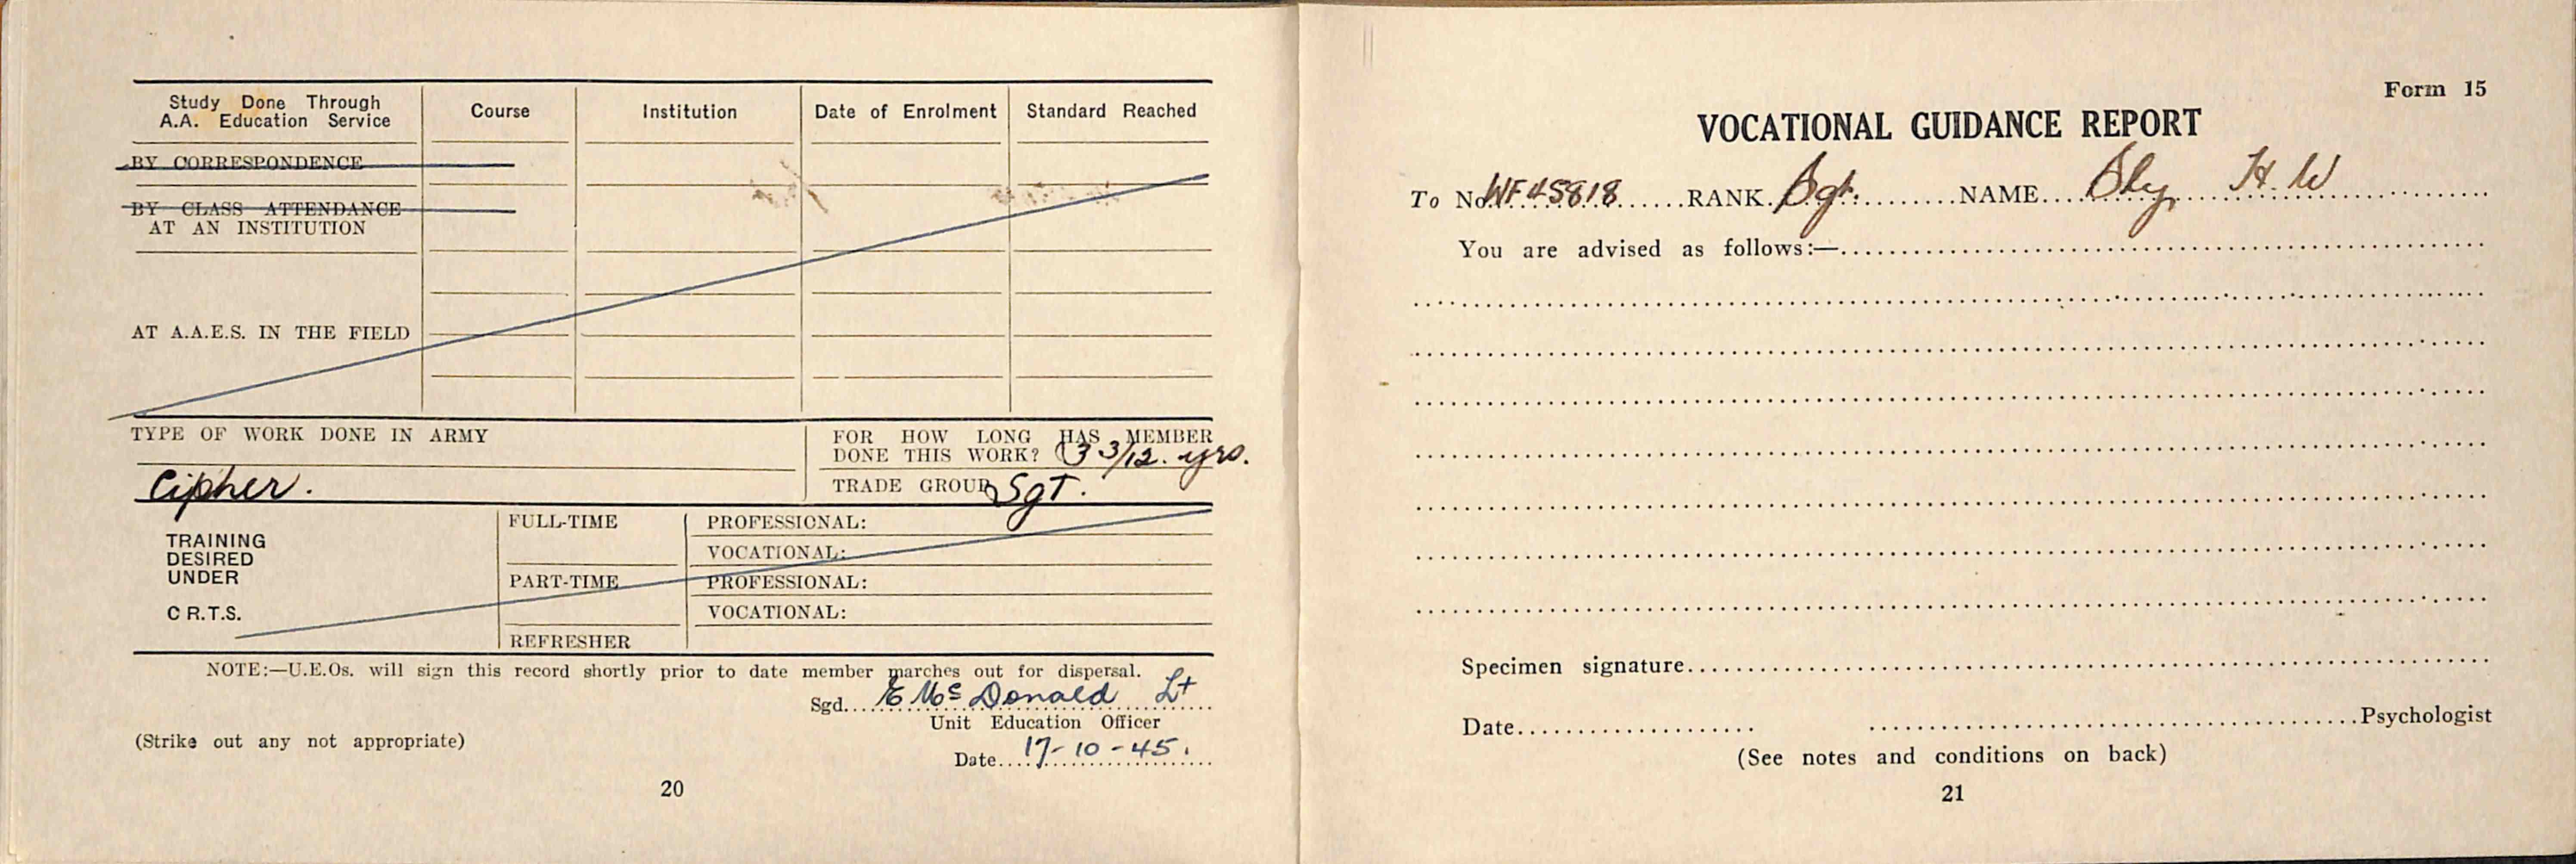 Study Done Through A.A. Education Service Course Institution Date of Enrolment Standard Reached
BY CORRESPONDENCE
BY CLASS ATTENDANCE
AT AN INSTITUTION
AT A.A.E.S. IN THE FIELD
TYPE OF WORK DONE IN ARMY
Cipher.
FOR HOW LONG HAS MEMBER
DONE THIS WORK? 3 3/12. yrs.
TRADE GROUP Sgt.
TRAINING
DESIRED
UNDER
C R.T.S.
FULL-TIME
PART-TIME
REFRESHER
PROFESSIONAL:
VOCATIONAL:
PROFESSIONAL:
VOCATIONAL:
NOTE:—U.E.Os. will sign this record shortly prior to date member marches out for dispersal.
Sgd. E McDonald Lt
Unit Education Officer
(Strike out any not appropriate)
Date 17-10-45.
20
Form 15
VOCATIONAL GUIDANCE REPORT
To No. WF45818 RANK Sgt. NAME H. W
You are advised as follows:—
Specimen signature
Date Psychologist
(See notes and conditions on back)
21